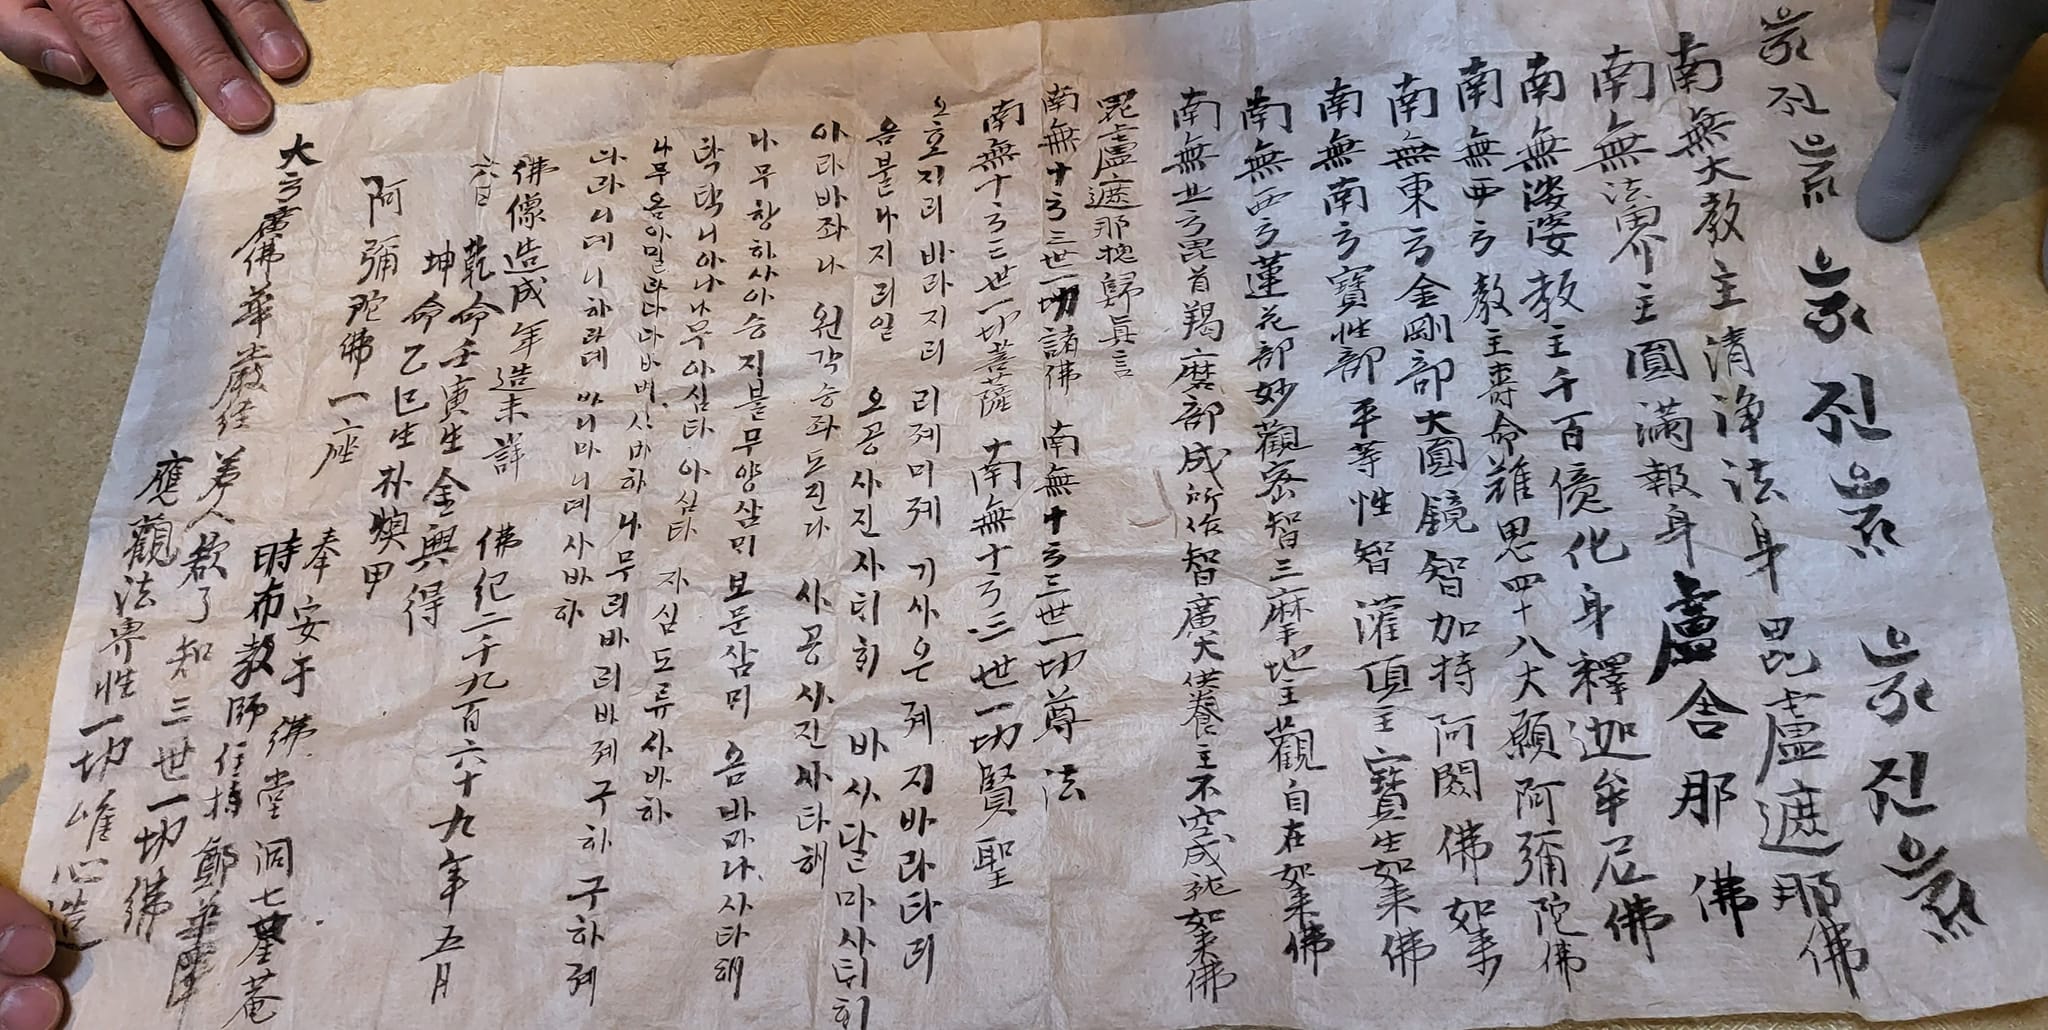 南無大教主清淨法身毘盧遮那佛
南無法界主圓滿報身盧舍那佛
南無娑婆教主千百億化身釋迦牟尼佛
南無西方教主壽命難思四十八大願阿彌陀佛
南無東方金剛部大圓鏡智加持阿閦佛如來
南無南方寶性部平等性智灌頂主寶生如來佛
南無西方蓮花部妙觀察智三摩地主觀自在如來佛
南無北方毘首羯磨部成所作智廣大供養主不空成就如來佛
毘盧遮那摠歸眞言
南無十方三世一切諸佛 南無十方三世一切尊法
南無十方三世一切菩薩 南無十方三世一切賢聖
오호지리 바라지리 리제미제 기사은제 지바라타리
옴불나지리일 오공사진사타해 바사달마사타해
아라바좌나 원각승좌도진나 사공사진사타해
나무항하사아승지불 무양삼미 보문삼미 옴바마나사타해
탁탁니아나 나무아심타아심타 자심도류사바하
나무옴아밀리다다바베사바하 나무리바리바제구하구하제
다라니제니하라제 바니마니제사바하
佛像造成年造未詳 佛紀二千九百六十九年五月
六日
乾命壬寅生 金興得
坤命乙巳生 朴煥甲
阿彌陀佛一座
奉安于佛堂洞七星菴
時布教師住持鄭
大方廣佛華嚴経
若人欲了知三世一切佛
應觀法界性一切唯心造